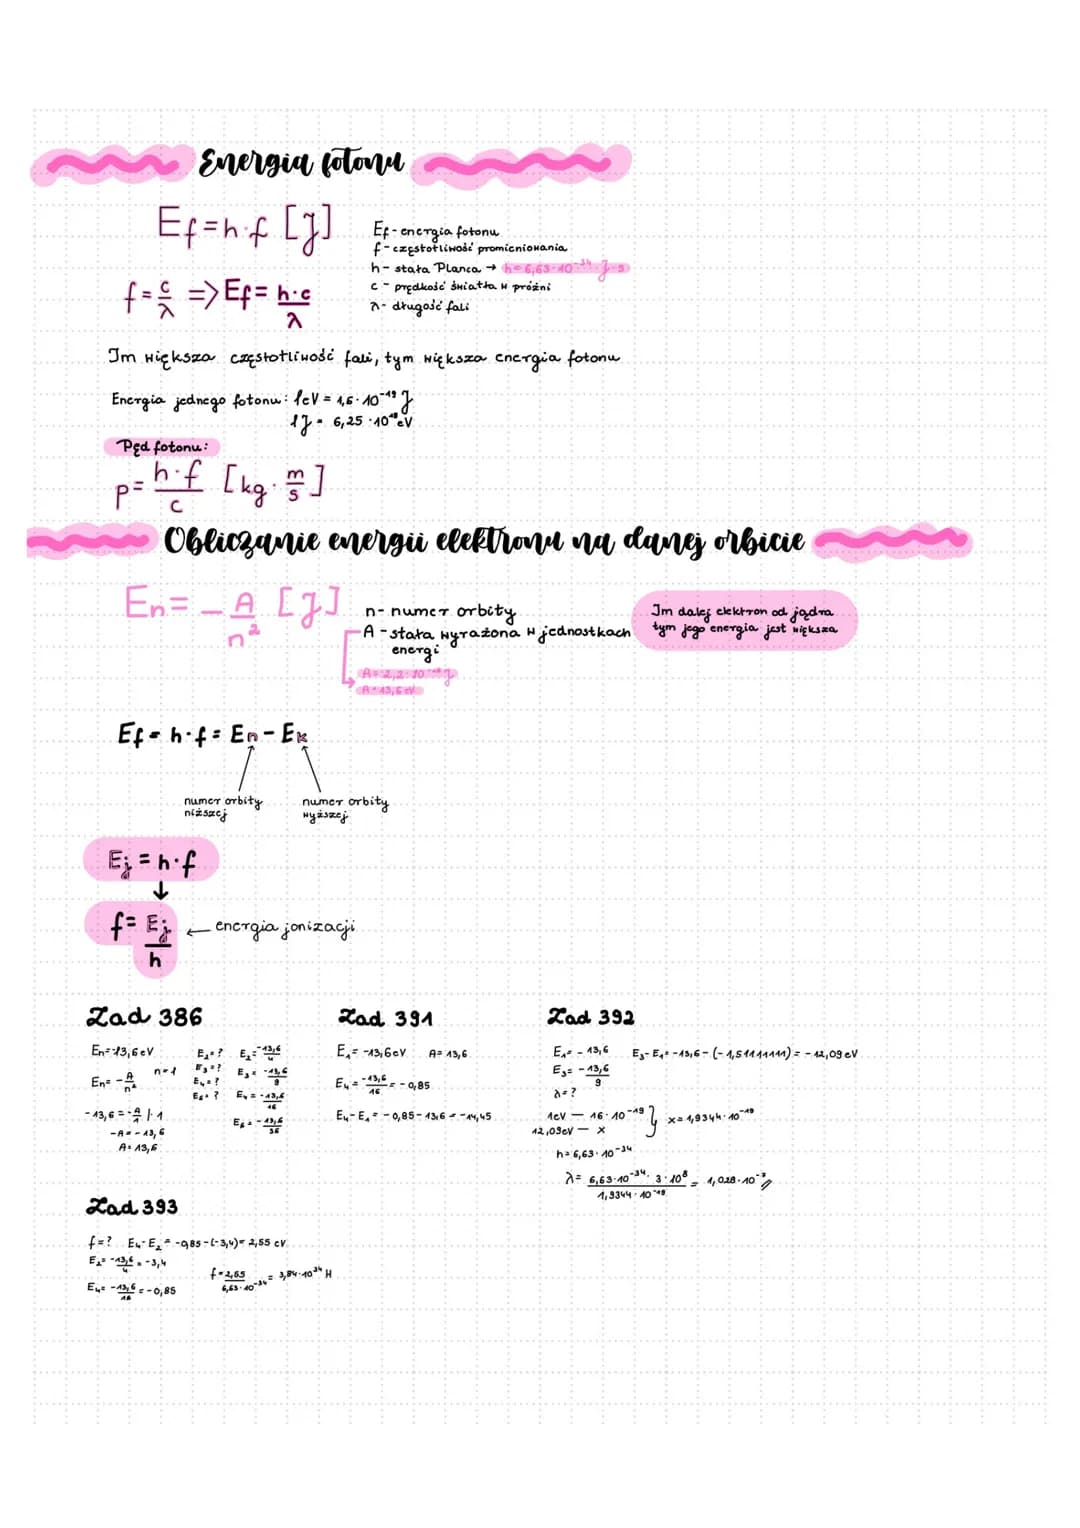 Energia fotonu
Ef = h·f [J]
f = c/λ => Ef = h·c/λ
Ef - energia fotonu
f - częstotliwość promieniowania
h - stała Planca → h = 6,63·10⁻³⁴ J·s
c - prędkość światła w próżni
λ - długość fali
Im większa częstotliwość fali, tym większa energia fotonu
Energia jednego fotonu: 1eV = 1,6·10⁻¹⁹ J
1J = 6,25·10¹⁸ eV
Pęd fotonu:
p = h·f/c [kg·m/s]
Obliczanie energii elektronu na danej orbicie
En = -A/n² [J]
n - numer orbity
A - stała wyrażona w jednostkach
energi
A = 2,2·10⁻¹⁸ J
A = 13,6 eV
Im dalej elektron od jądra
tym jego energia jest większa
Ef = h·f = En - Ek
numer orbity
niższej
numer orbity
wyższej
Ej = h·f
↓
f = Ej/h ← energia jonizacji
Zad 386
En = -13,6 eV
En = -A/n² n=1
-13,6 = -A/1 |·1
-A = -13,6
A = 13,6
E₂ = ? E₂ = -13,6/4
E₃ = ? E₃ = -13,6/9
E₄ = ? E₄ = -13,6/16
E₆ = ? E₆ = -13,6/36
Zad 391
E₁ = -13,6eV A = 13,6
E₄ = -13,6/16 = -0,85
E₄ - E₁ = -0,85 - 13,6 = -14,45
Zad 392
E₁ = -13,6 E₃ - E₁ = -13,6 - (-1,51111111) = -12,09 eV
E₃ = -13,6/9
λ = ?
1eV — 16·10⁻¹⁹
12,09eV — x } x = 1,9344·10⁻¹⁹
h = 6,63·10⁻³⁴
λ = 6,63·10⁻³⁴·3·10⁸/1,9344·10⁻¹⁹ = 1,028·10⁻⁷
Zad 393
f = ? E₄ - E₂ = -0,85 - (-3,4) = 2,55 eV
E₂ = -13,6/4 = -3,4
E₄ = -13,6/16 = -0,85
f = 2,55/6,63·10⁻³⁴ = 3,84·10³⁴ H